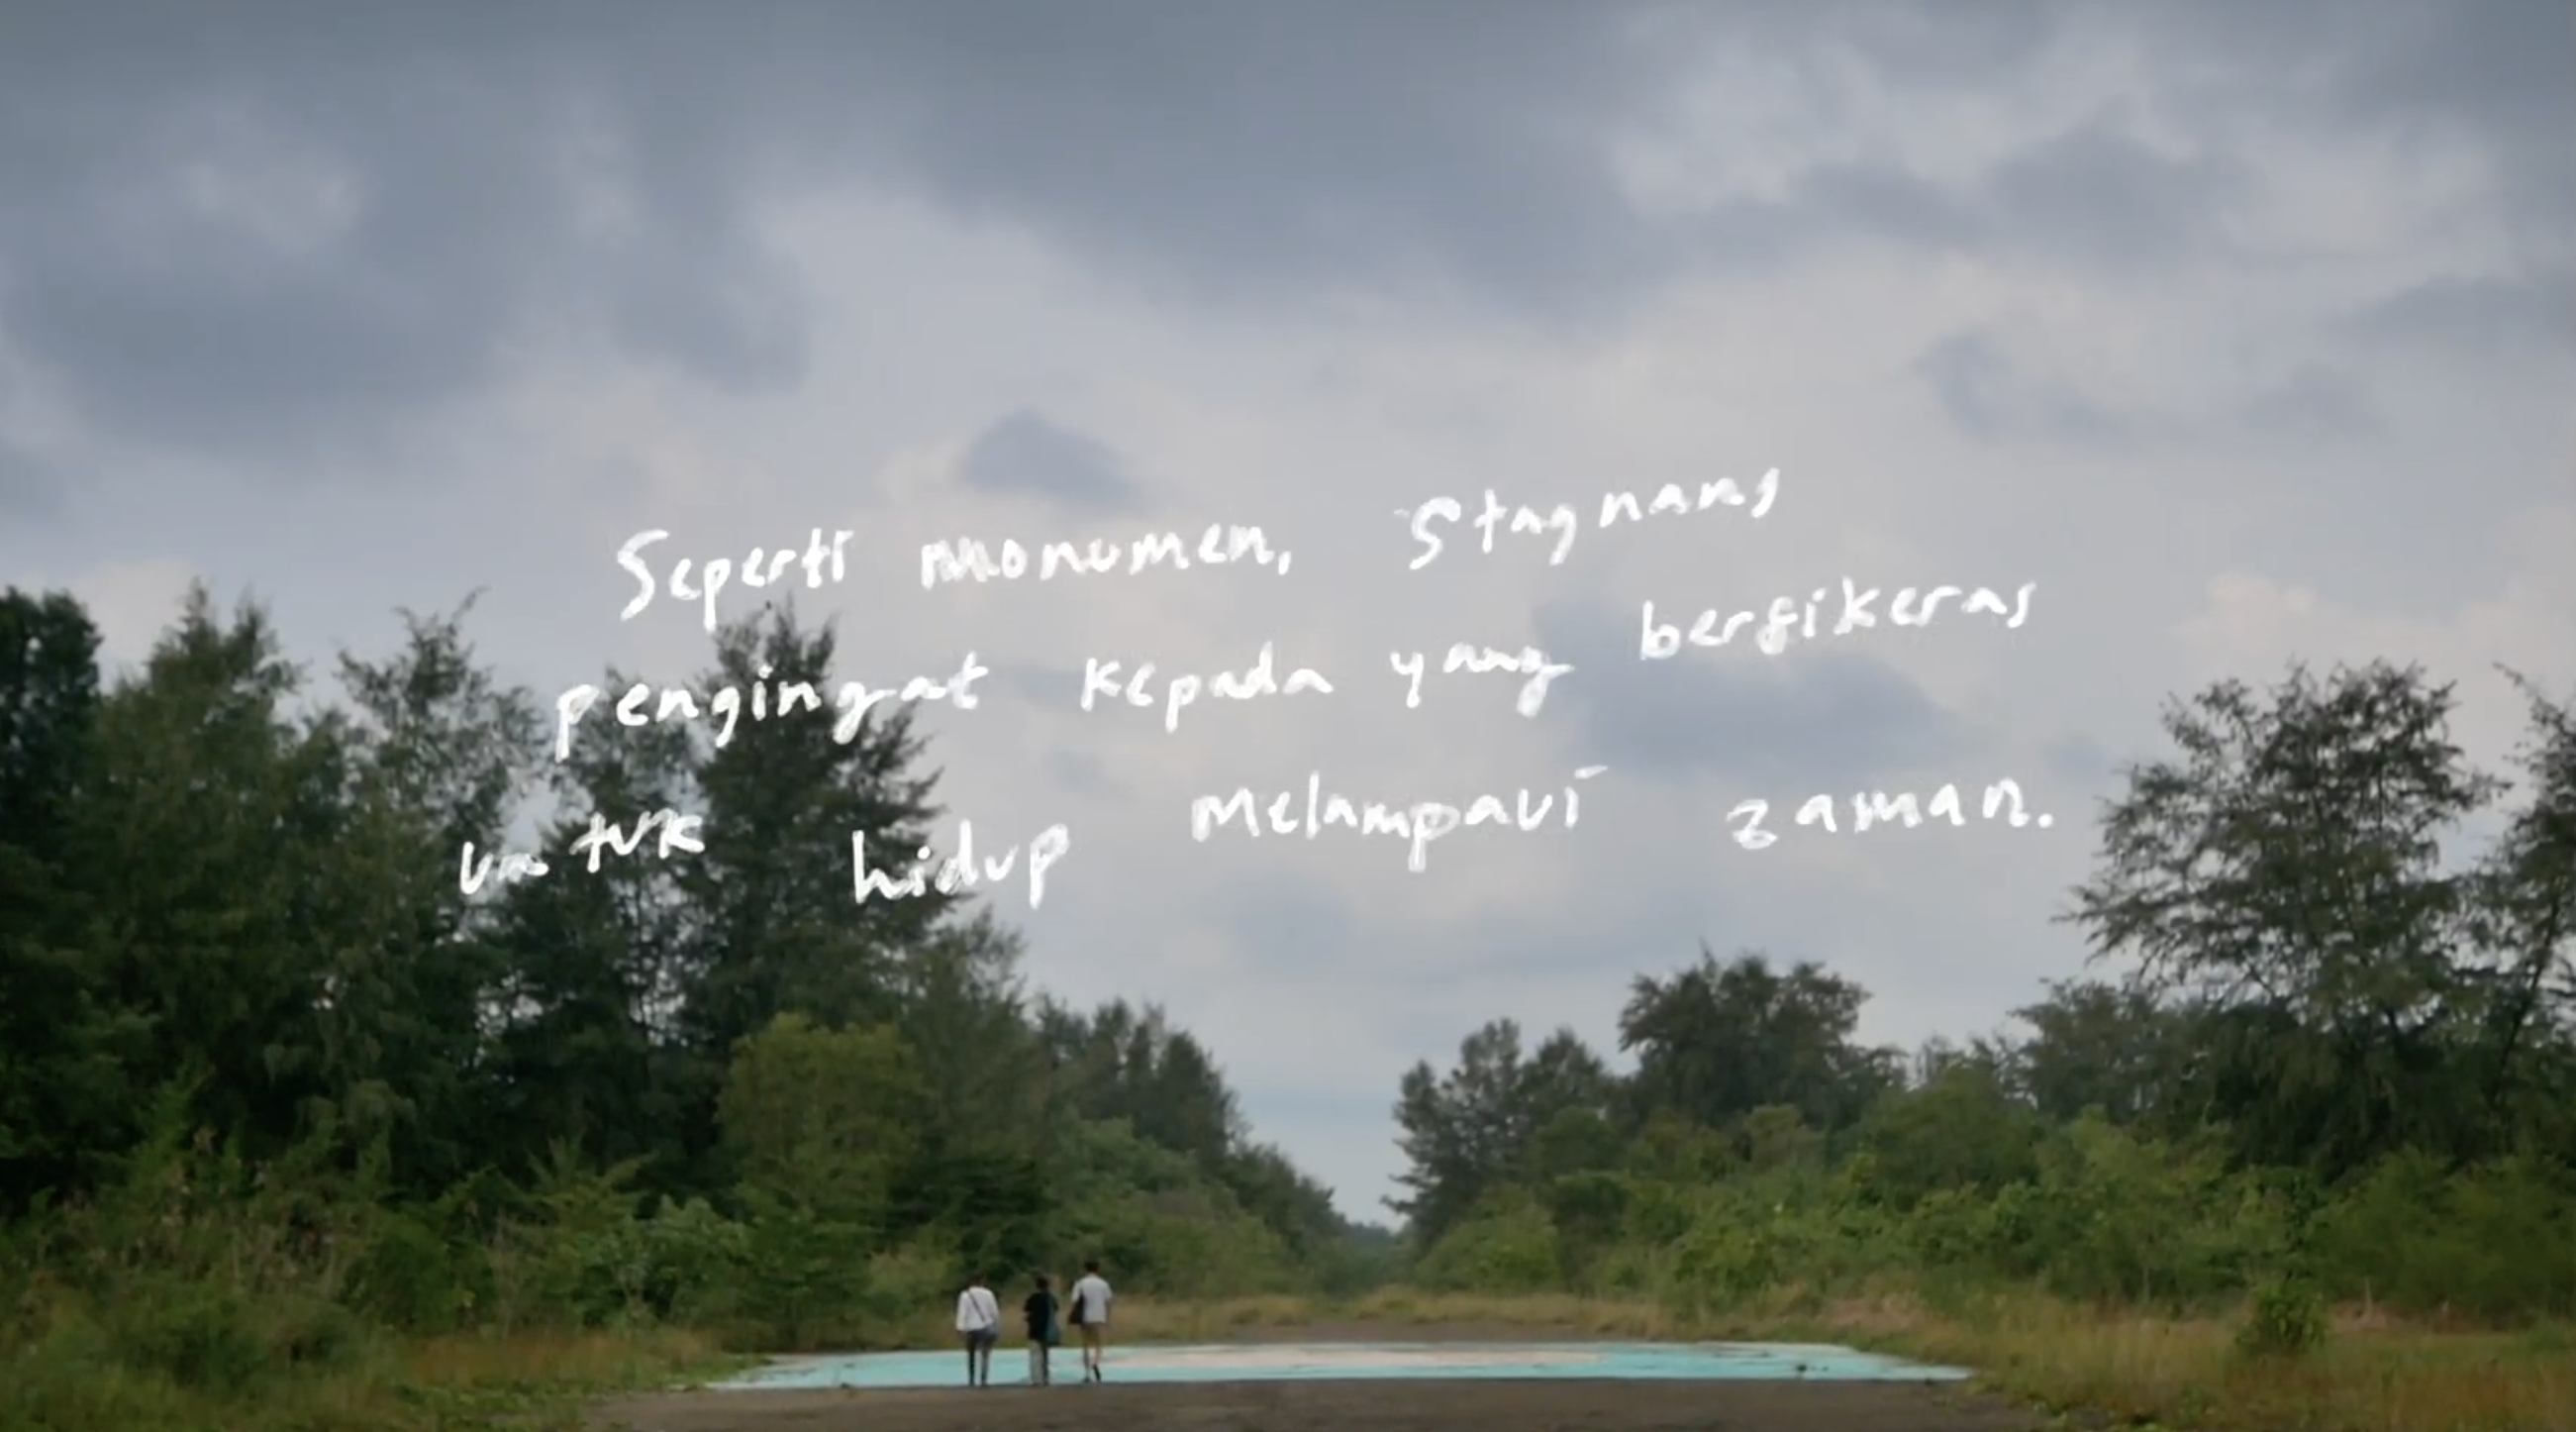 Seperti monumen, Stagnan,
pengingat kepada yang bersikeras
untuk hidup Melampaui zaman.